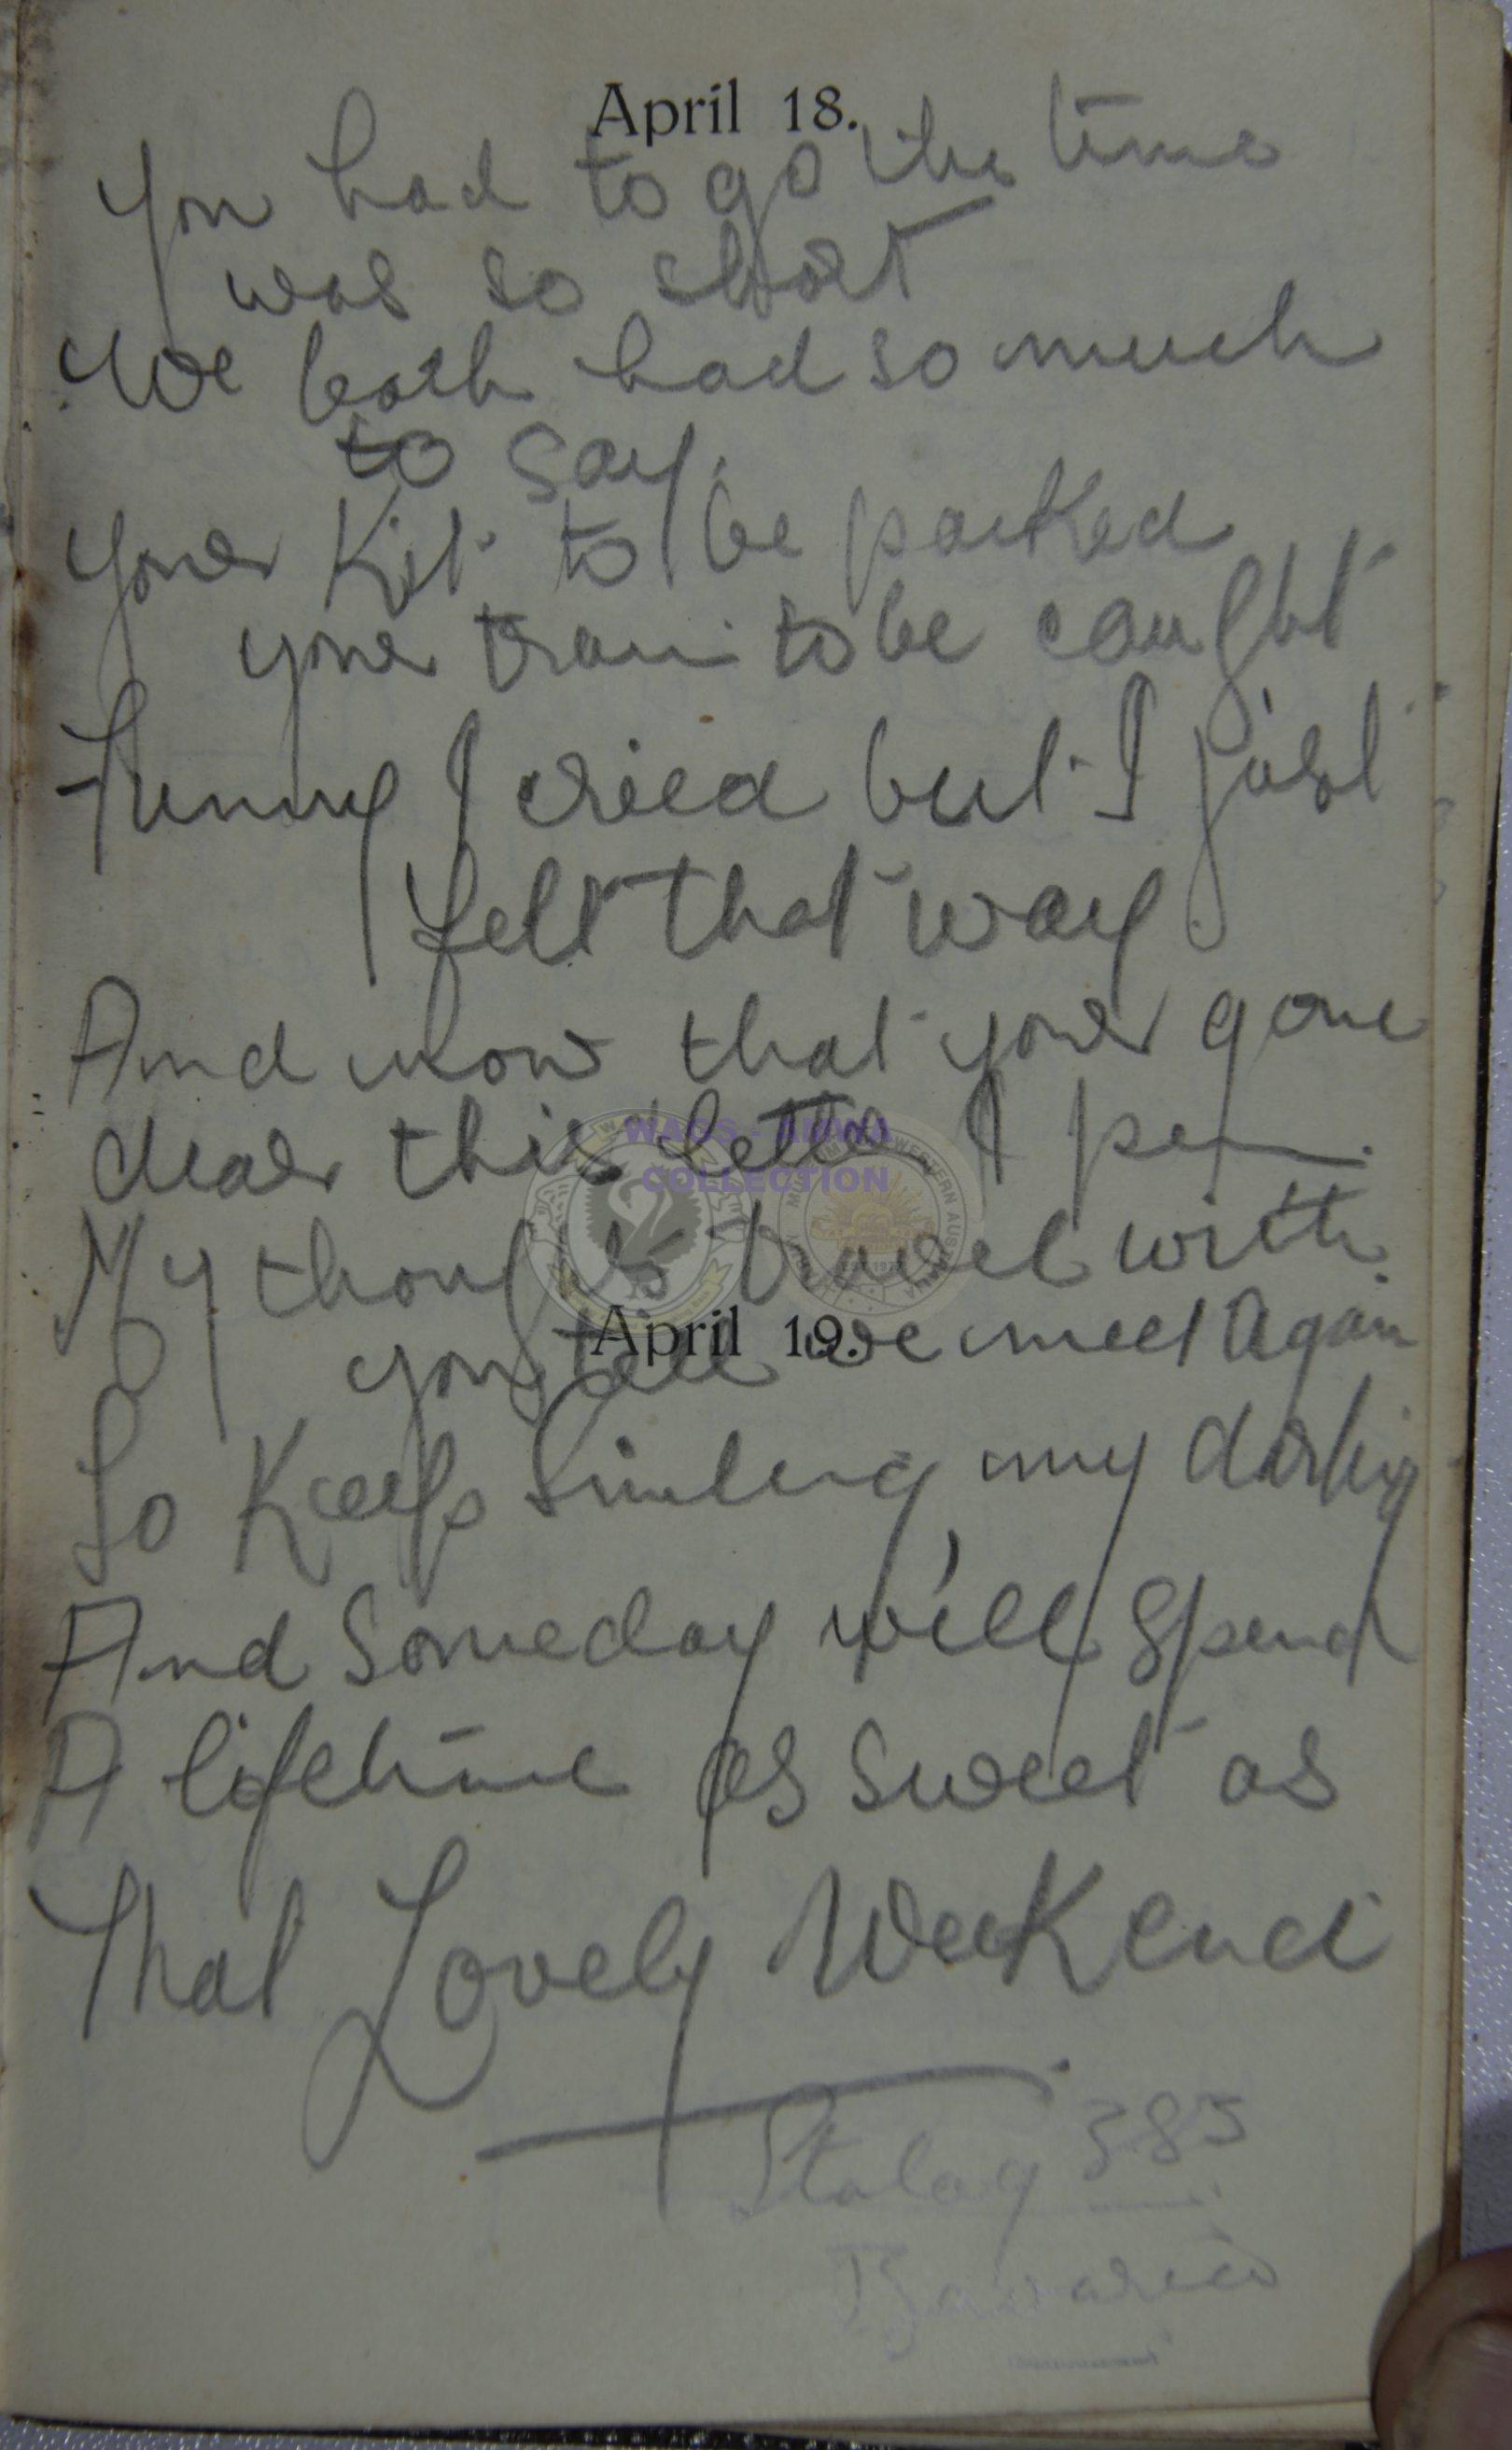 April 18.
You had to go the time
was so short
We both had so much
to say.
Your Kit to be packed
your train to be caught
Funny I cried but I just
felt that way
And now that your gone
dear this Letter I pen.
My thoughts travel with
you till we meet Again
April 19.
So Keep Smiling my darling
And Someday we'll Spend
A lifetime as Sweet as
That Lovely WeeKend
Stalag 383
Bavaria
WAGS - AHWA
COLLECTION